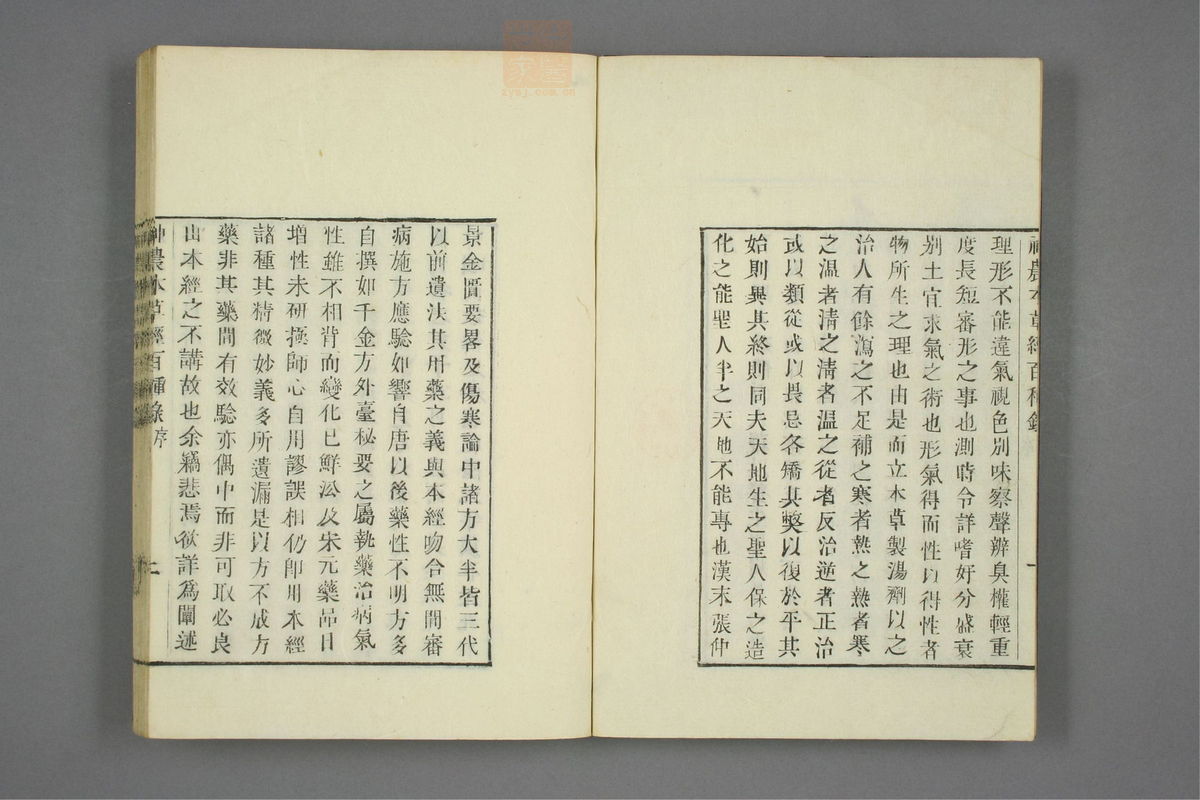 理形不能違氣視色別味察聲辨臭權輕重
度長短審形之事也測時令詳嗜好分盛衰
別土宜求氣之術也形氣得而性以得性者
物所生之理也由是而立本草製湯劑以之
治人有餘瀉之不足補之寒者熱之熱者寒
之温者清之清者温之從者反治逆者正治
或以類從或以畏忌各矯其獘以復於平其
始則異其終則同夫天地生之聖人保之造
化之能聖人半之天地不能專也漢末張仲
景金匱要畧及傷寒論中諸方大半皆三代
以前遺法其用藥之義與本經吻合無間審
病施方應驗如響自唐以後藥性不明方多
自撰如千金方外臺秘要之屬執藥治病氣
性雖不相背而變化已鮮沿及宋元藥品日
增性未研極師心自用謬誤相仍即用本經
諸種其精微妙義多所遺漏是以方不成方
藥非其藥間有效驗亦偶中而非可取必良
由本經之不講故也余竊悲焉欲詳爲闡述
神農本草經百種錄 序 二
zysj.com.cn